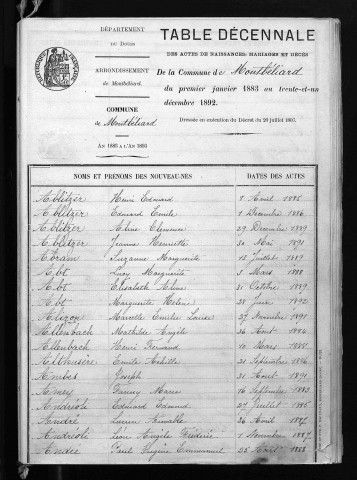 DÉPARTEMENT
DU DOUBS
ARRONDISSEMENT
de Montbéliard.
COMMUNE
de Montbéliard
AN 1883 A L'AN 1893
TABLE DÉCENNALE
DES ACTES DE NAISSANCES, MARIAGES ET DÉCÈS
De la Commune de Montbéliard
du premier janvier 1883 au trente-et-un
décembre 1892.
Dressée en exécution du Décret du 20 juillet 1807.
NOMS ET PRÉNOMS DES NOUVEAU-NÉS DATES DES ACTES
Ablitzer Henri Edouard 8 Avril 1885
Ablitzer Edouard Emile 1 Décembre 1886
Ablitzer Aline Clémence 29 Décembre 1889
Ablitzer Jeanne Henriette 30 Mai 1891
Abram Suzanne Marguerite 12 Juillet 1889
Abt Lucy Marguerite 5 Mars 1888
Abt Elisabeth Aline 31 Octobre 1889
Abt Marguerite Hélène 28 Juin 1892
Alizon Mireille Emilie Louise 27 Novembre 1891
Allenbach Mathilde Angèle 26 Août 1884
Allenbach Henri Fernand Mars 1888
Althusère Emile Achille 21 Septembre 1886
Ambes Joseph 31 Août 1891
Amey Fanny Marie 16 Septembre 1883
Andréoli Edouard Edmond 27 Juillet 1885
André Lucien Aimable 26 Avril 1887
Andréoli Léon Angèle Frédéric 1 Novembre 1887
André Paul Eugène Emmanuel 25 Avril 1888